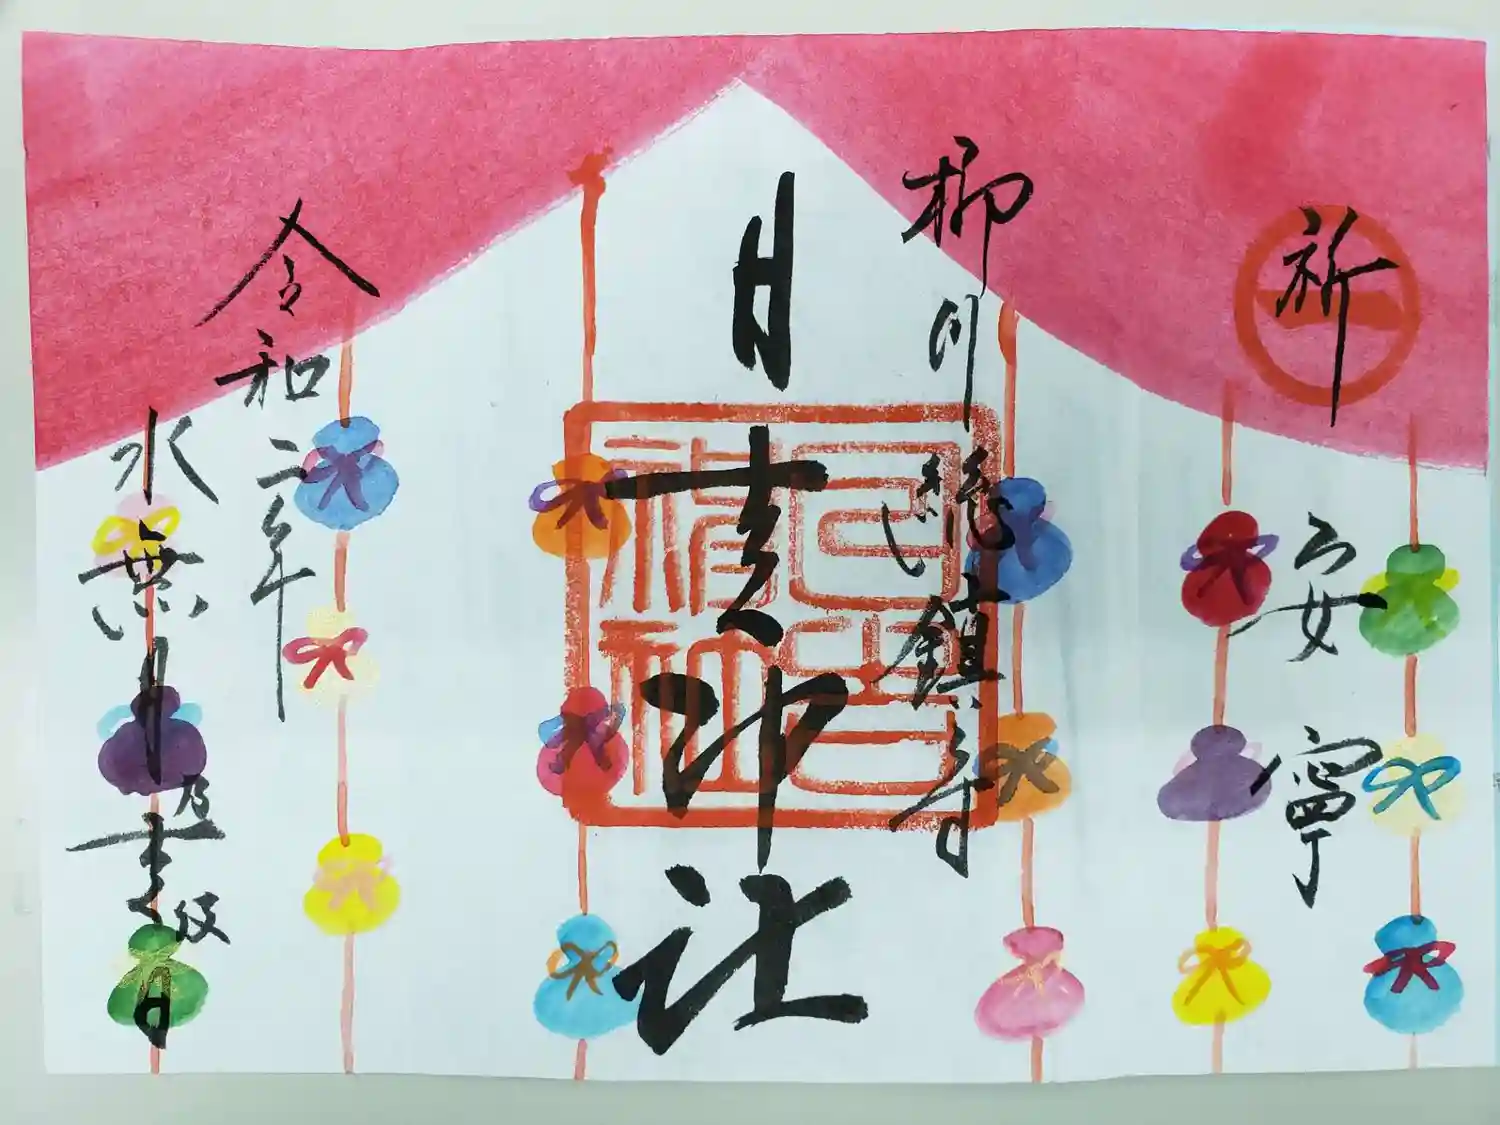 祈
安寧
柳川総鎮守
日吉神社
日吉神社
令和二年
水無月乃吉伎日